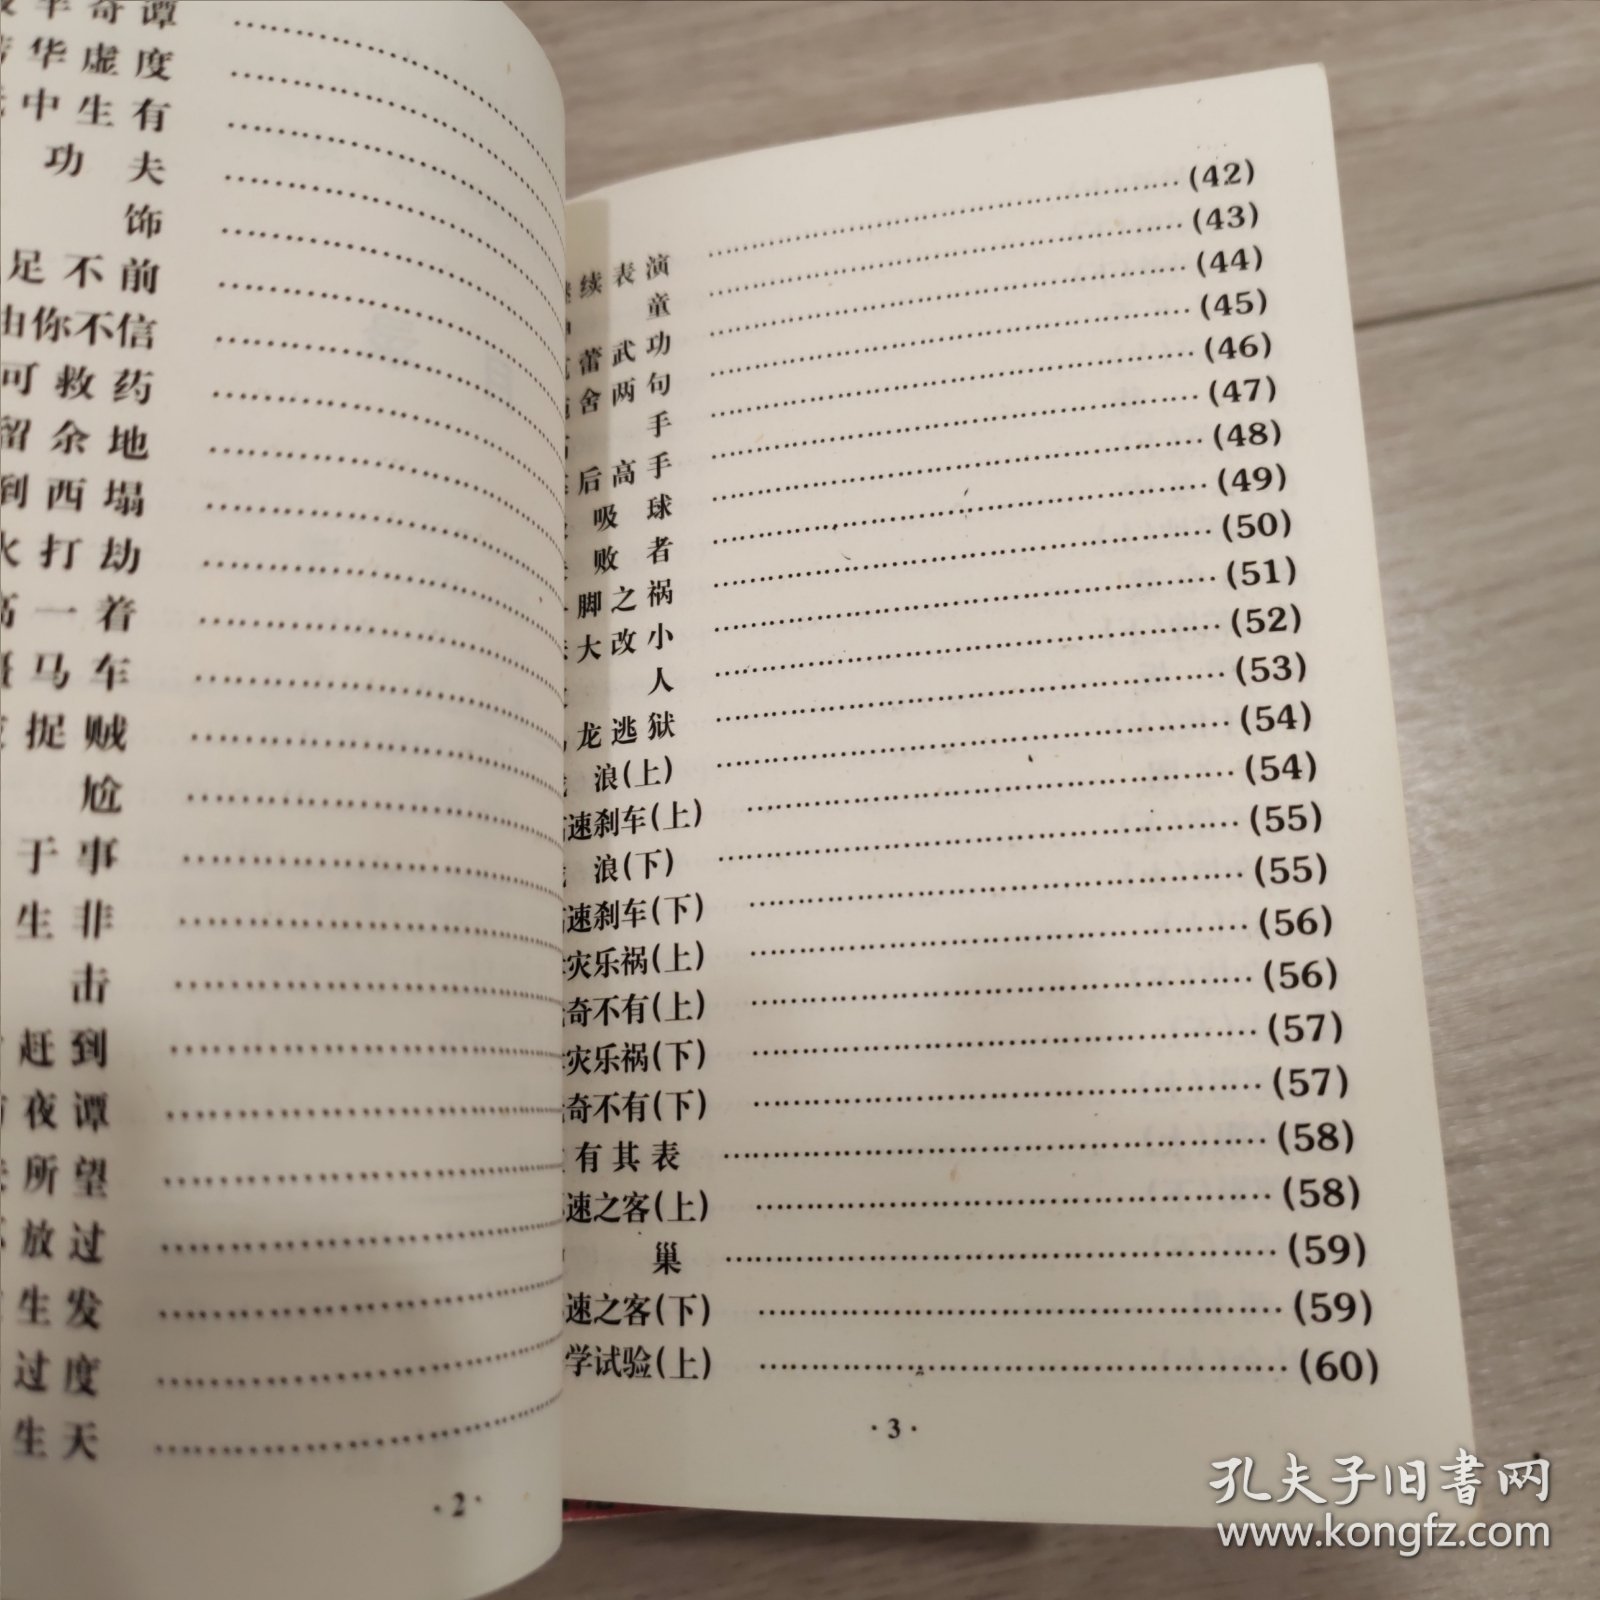 奇谭
华虚度
中生有
功夫
饰
足不前
由你不信
可救药
留余地
到西塌
火打劫
高一着
马车
捉贼
尬
于事
生非
击
赶到
夜谭
所望
放过
生发
过度
生天
·2·
续表演 (42)
童 (43)
蕾武功 (44)
舍两句 (45)
手 (46)
后高手 (47)
吸球 (48)
败者 (49)
脚之祸 (50)
大改小 (51)
人 (52)
龙逃狱 (53)
浪(上) (54)
速刹车(上) (54)
浪(下) (55)
速刹车(下) (55)
灾乐祸(上) (56)
奇不有(上) (56)
灾乐祸(下) (57)
奇不有(下) (57)
有其表 (58)
速之客(上) (58)
巢 (59)
速之客(下) (59)
学试验(上) (60)
·3·
孔夫子旧書网
www.kongfz.com